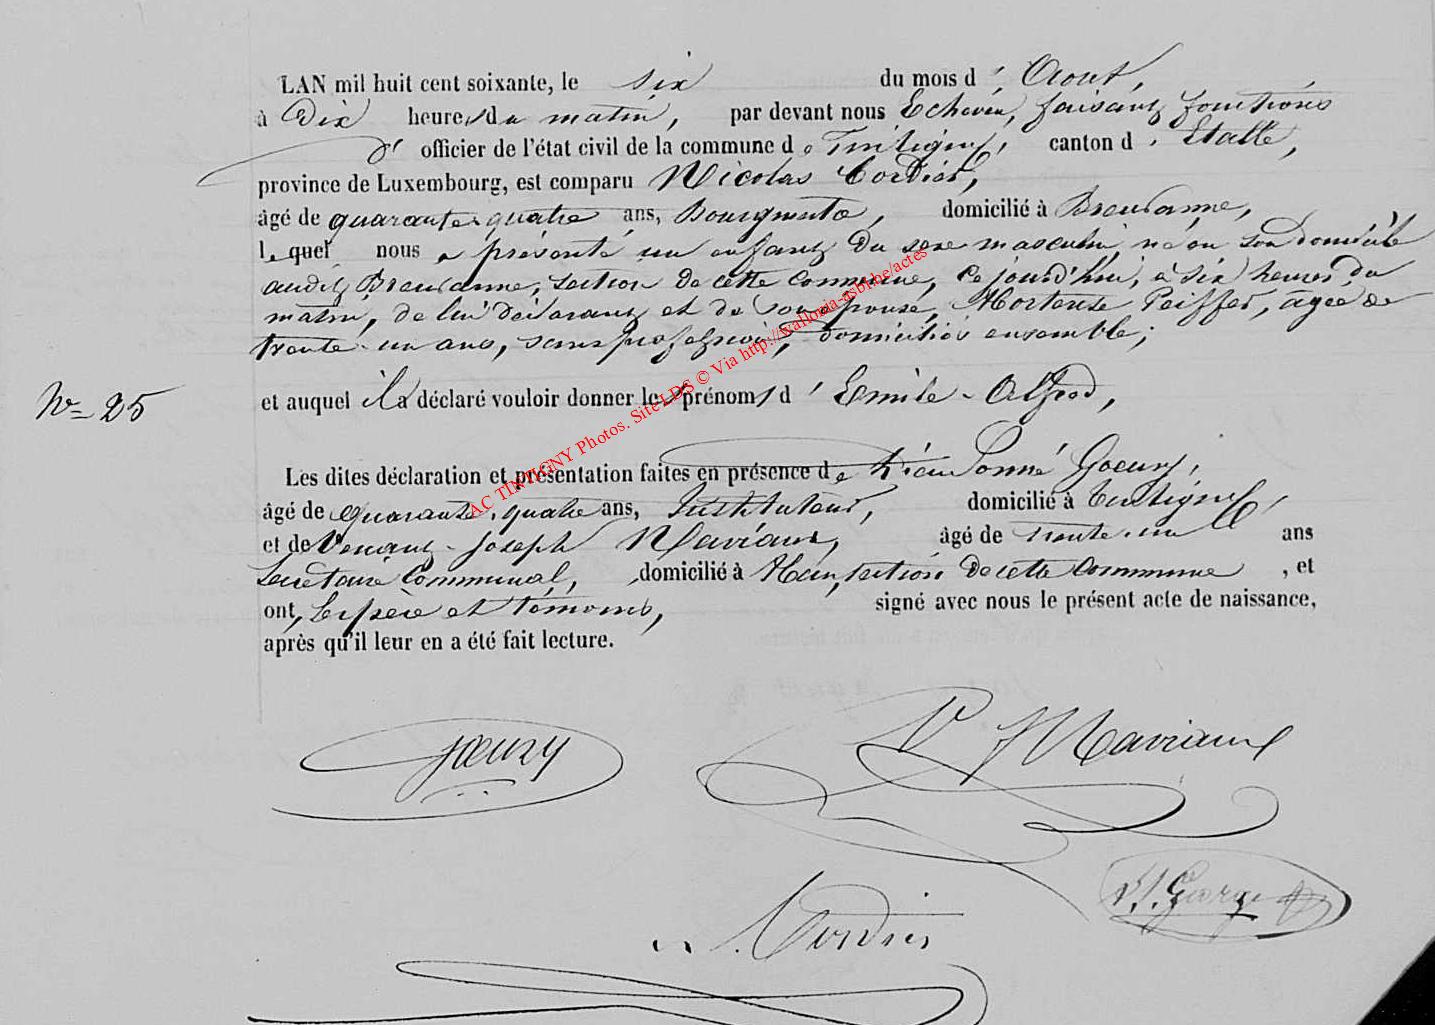 LAN mil huit cent soixante, le six du mois d' Aout,
à Dix heures du matin, par devant nous Echevin, faisant fonctions
d' officier de l'état civil de la commune de Tintigny, canton d' Etalle,
province de Luxembourg, est comparu Nicolas Cordier,
âgé de quarante-quatre ans, Bourgmestre, domicilié à Breuvanne,
lequel nous a présenté un enfant du sexe masculin né en son domicile
audit Breuvanne, section de cette commune, ce jourd'hui, à six heures du
matin, de lui déclarant et de son épouse, Hortense Peiffer, agée de
trente-un ans, sans profession, domiciliés ensemble;
N° 25 et auquel il a déclaré vouloir donner les prénoms d' Emile-Alfred,
Les dites déclaration et présentation faites en présence de Dieudonné Goeury,
âgé de quarante-quatre ans, Instituteur, domicilié à Tintigny,
et de Venant-Joseph Maviaux, âgé de trente-un ans
Secrétaire Communal, domicilié à Han, section de cette commune, et
ont, les père et témoins, signé avec nous le présent acte de naissance,
après qu'il leur en a été fait lecture.
AC TINTIGNY Photos. Site LDS © Via http://wallonia-asbl.be/actes
Goeury
V J Maviaux
Cordier